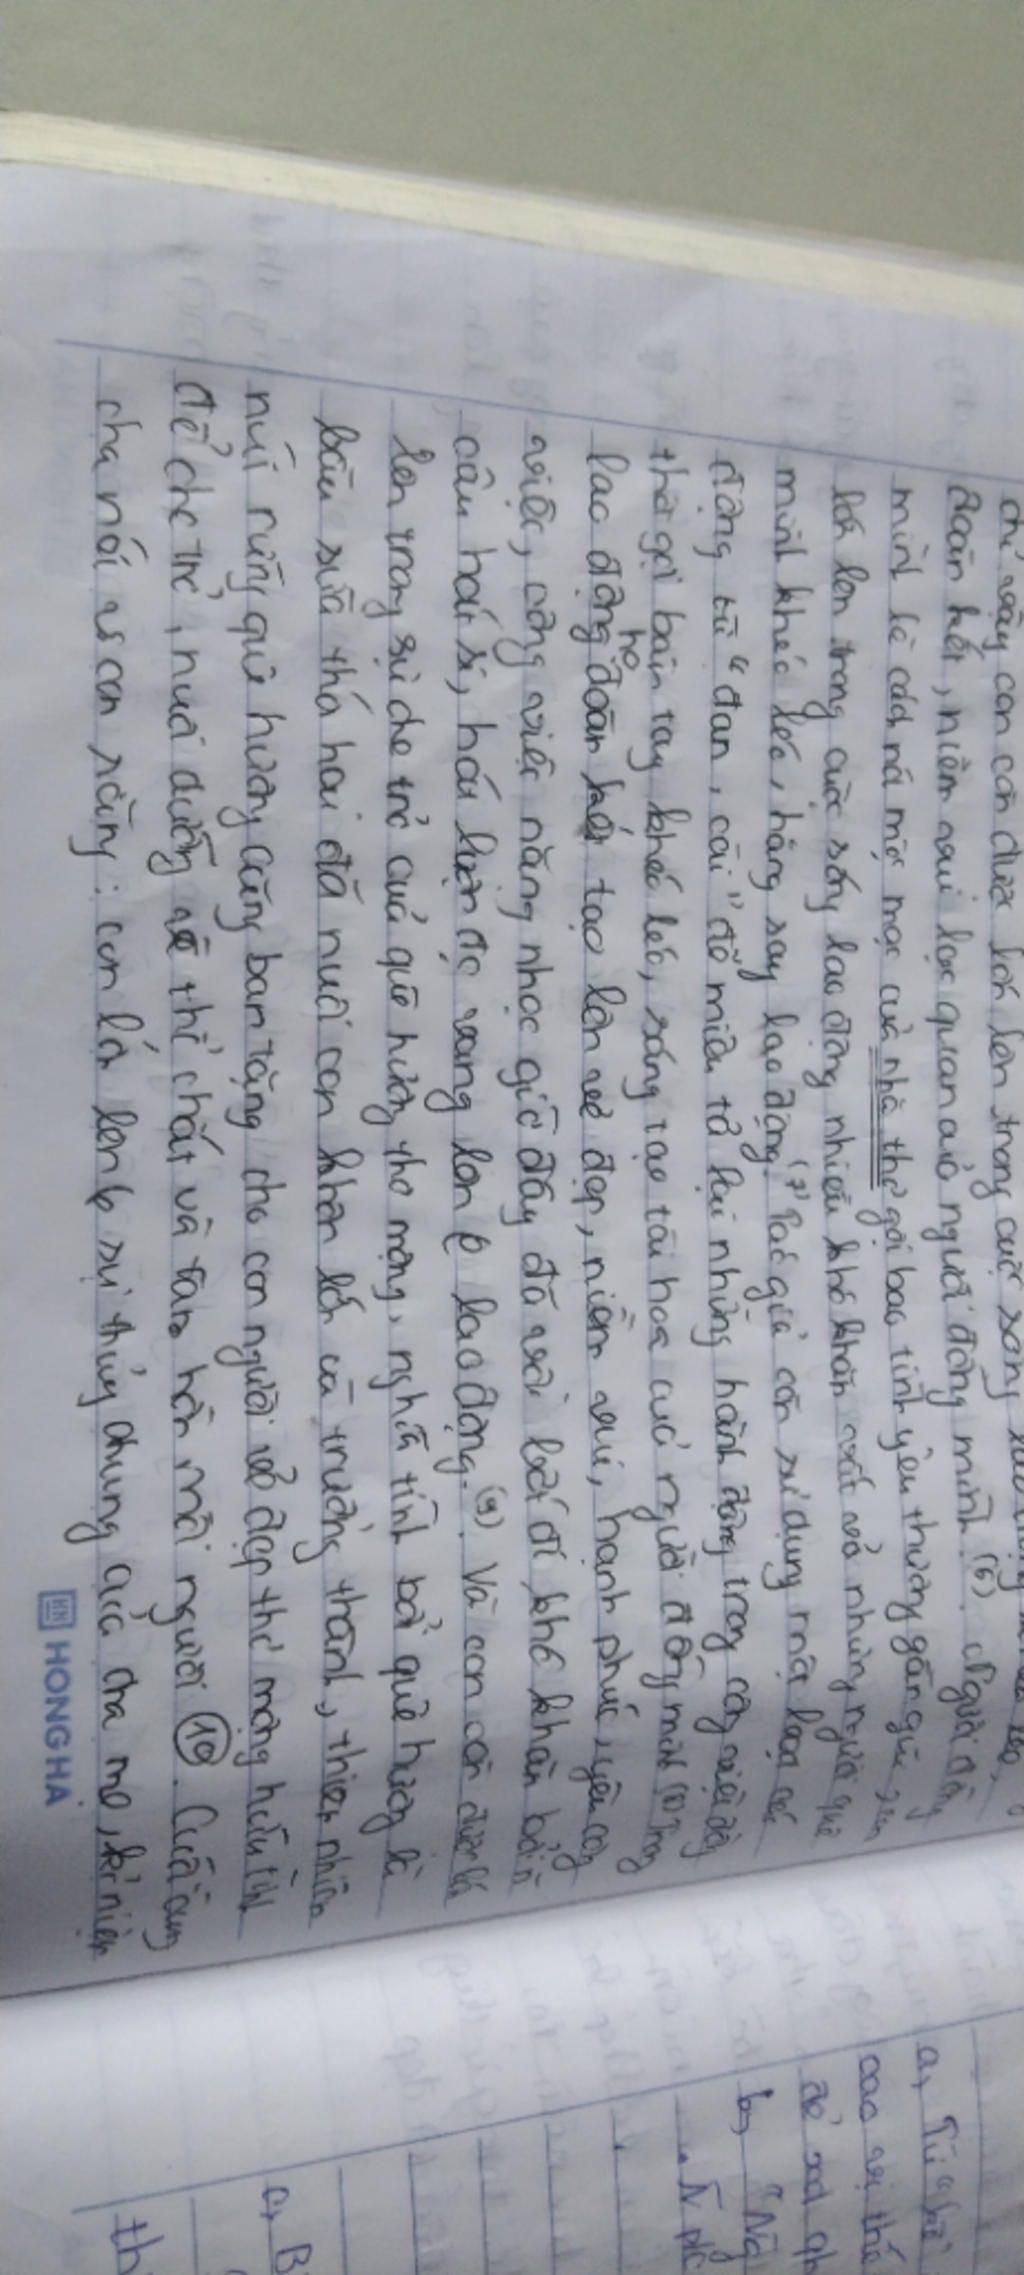 chỉ vậy con còn được lớn lên trong cuộc sống lao động
đoàn kết, niềm vui lạc quan của người đồng mình (6). Người đồng
mình là cách nói mộc mạc của nhà thơ gợi bao tình yêu thương gần gũi,
lớn lên trong cuộc sống lao động nhiều khó khăn vất vả nhưng người quê
mình khéo léo, hăng say lao động. (7) Tác giả còn sử dụng một loạt các
động từ "đan, cài" để miêu tả lại những hành động trong công việc
thời gợi bàn tay khéo léo, sáng tạo tài hoa của người đồng mình (8) Trong
lao động họ đoàn kết tạo lên vẻ đẹp, niềm vui, hạnh phúc, yêu công
việc, công việc nặng nhọc giờ đây đã vơi bớt đi khó khăn bởi
câu hát si, hát lượn đọ vang lên lao động. (9). Và con còn được lớn
lên trong sự che trở của quê hương thơ mộng, nghĩa tình bởi quê hương là
bầu sữa thứ hai đã nuôi con khôn lớn và trưởng thành, thiên nhiên
núi rừng quê hương cũng ban tặng cho con người vẻ đẹp thơ mộng hữu tình
để che trở, nuôi dưỡng về thể chất và tâm hồn mỗi người (10). Cuối cùng
cha nói với con rằng: con lớn lên từ sự thủy chung của cha mẹ, kỉ niệm
HONG HA
a, Từ
cao
b, "Ng
c, B
th